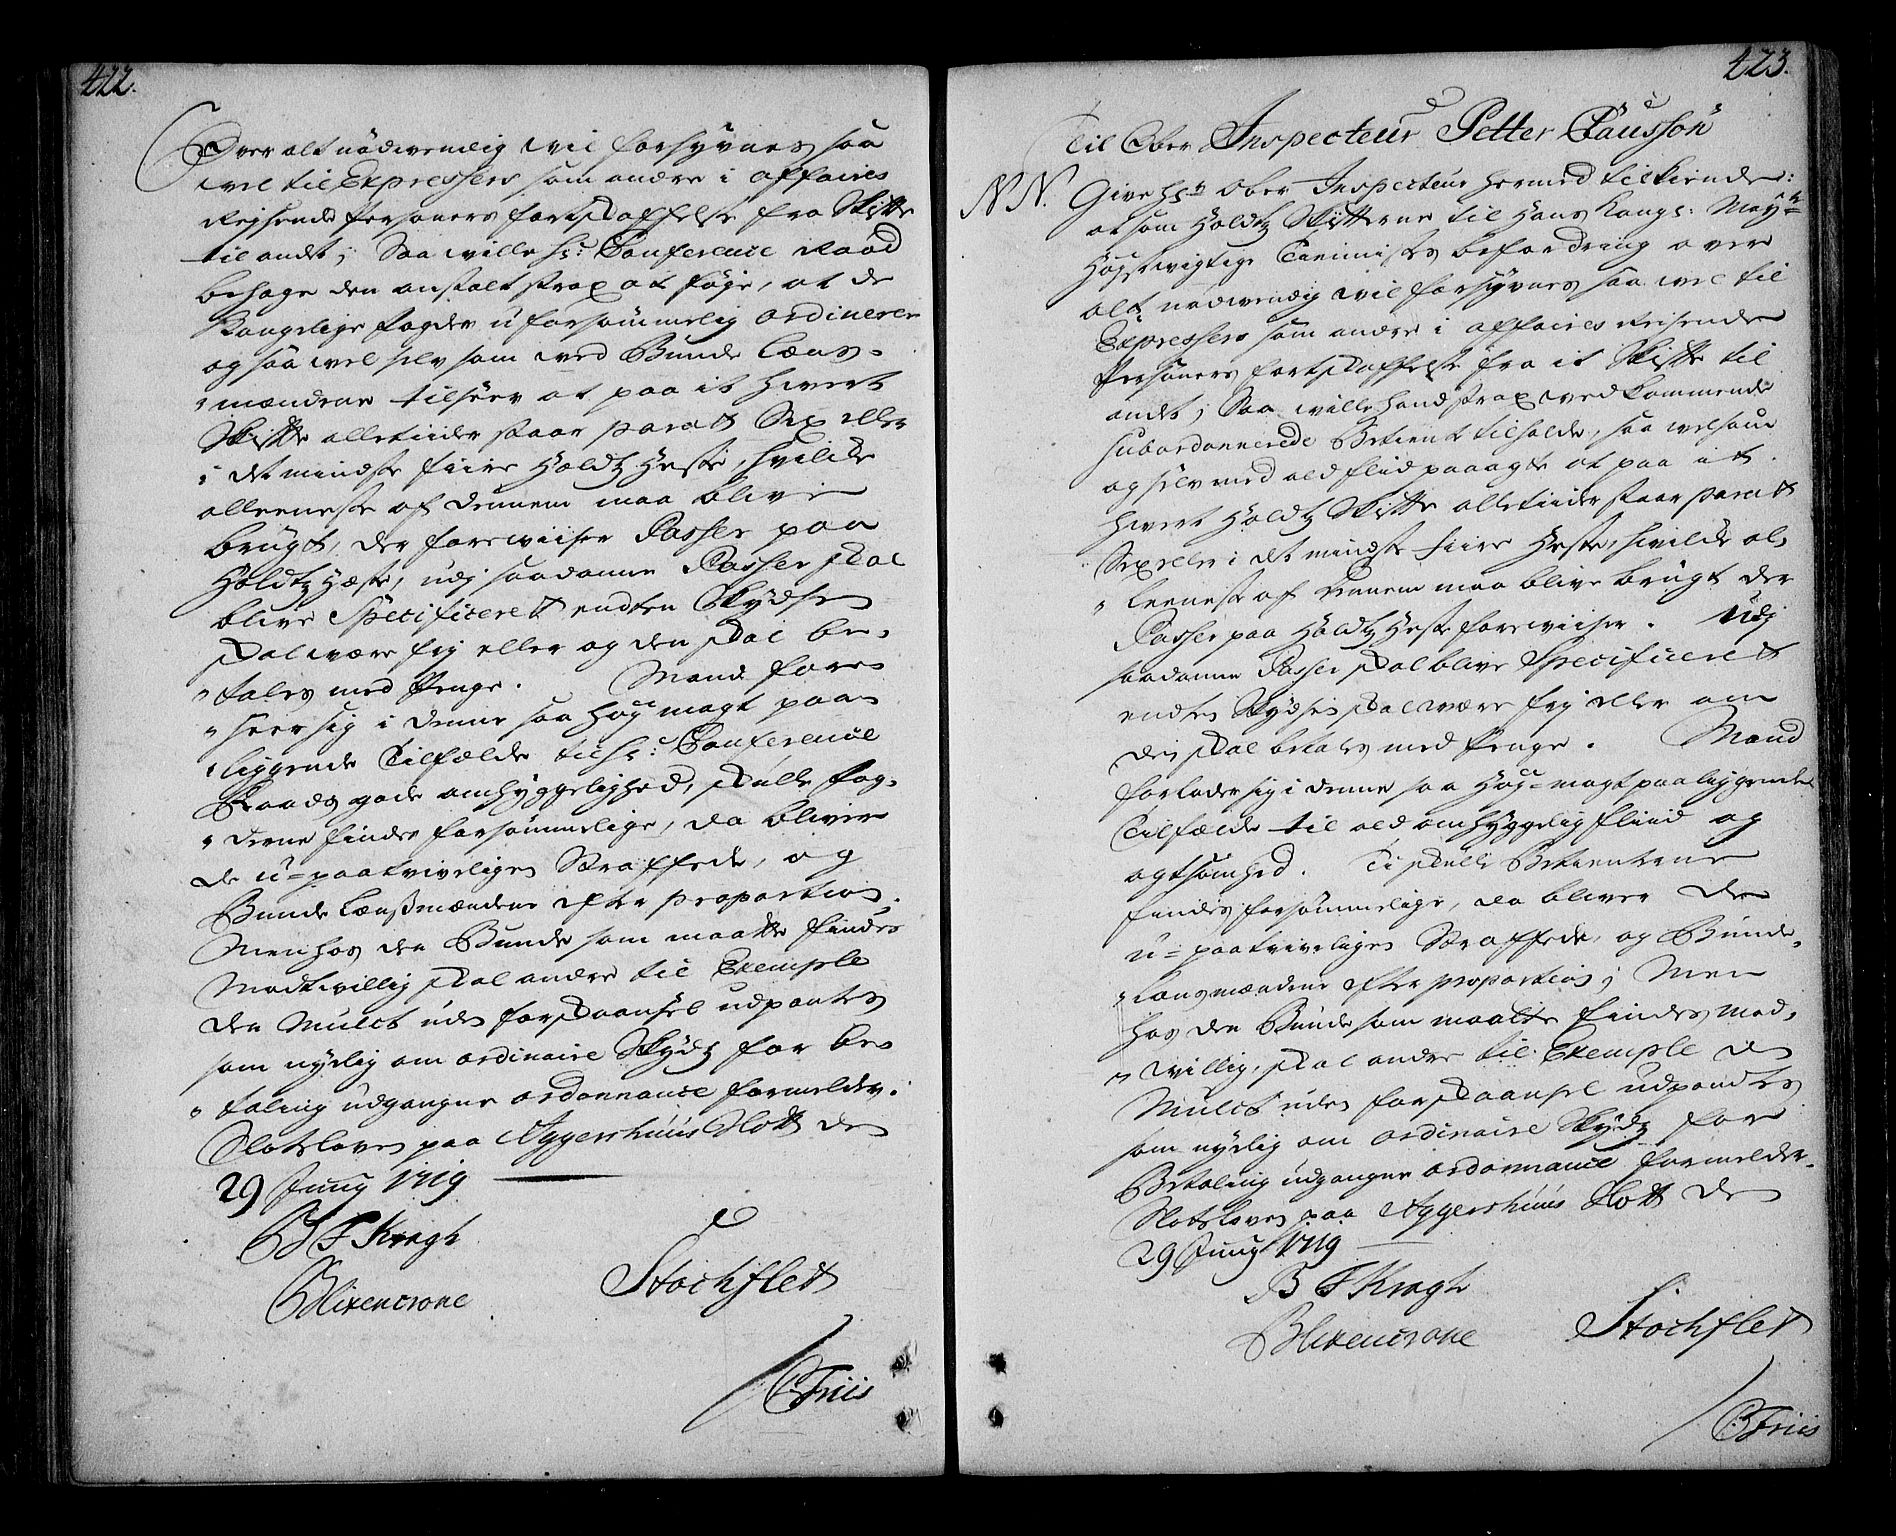 422.
Over alt nödvendig vil forsyvnes saa
vel til Expresser som andre i affaires
Reisende Persohners fortskaffelse fra Skiffte
til andet; Saa wille hr: Conference Raad
behage den anstalt strax at föje, at de
Kongelige fogder uforsömmelig ordinerer
og saa vel selv som ved Bunde Læns-
mændene tilseer at paa it hvert
Skiffte alletiider staar parat Sex eller
i det mindste fiire Holdtz Heste, hvilcke
alleeneste af dennem maa blive
brugt, der foreviiser Passer paa
Holdtz Hæste, udj saadanne Passer skal
blive Specificeret endten Skydsen
skal være frj eller og den skal be-
tales med Penge. Mand fore-
seer sig i denne saa höy magt paa-
liggende Tilfælde til hr: Conference
Raads gode omhyggelighed, skulle fog-
derne findes forsömmelige, da bliver
de u-paatviveligen Straffede, og
Bunde Lænssmændene efter proportion.
Men hos den Bunde som maatte findes
Modtvillig skal andre til Exemple
den Mulct uden forskaansel udpantes
som nylig om ordinaire Skydtz for be-
taling udgangne ordonnance formelder.
Slotsloven paa Aggershuus Slott den
29 Junij 1719
B F Kragh
Blixencrone Stochflet
C Friis
423.
Til Ober Inspecteur Petter Clausson
NN. Give hr Ober Inspecteur hermed tilkiende:
at som Holdtz Skiffterne til Hans Kongs: Mayts
Höystvigtige Tienistes befordring over
alt nödvendig vil forsyvnes saa vel til
Expresser som andre i affaires Reisende
Persohners fortskaffelse fra it Skiffte til
andet; Saa wille hand strax vedkommende
subordonnerede Betiente tilholde, saa velsom
og selv med ald fliid paaagte at paa it
hvert Holdtz Skiffte alletiider staar parat
Sex eller i det mindste fiire Heste, hvilcke al-
leeneste af dennem maa blive brugt der
Passer paa Holdtz Heste foreviiser. Udj
saadanne Passer skal blive Specificeret
endten Skydsen skal være frj eller om
den skal betales med Penge. Mand
forlader sig i denne saa Höy-magtpaaliggende
Tilfælde til ald omhyggelig fliid og
agtsomhed. Ti skulle Betienterne
findes forsömmelige, da bliver de
u-paatviveligen Straffede, og Bunde-
Lænsmændene efter proportion; Men
hos den Bunde som maatte findes mod-
villig, skal andre til Exemple den
Mulct uden forskaansel udpandtes
som nylig om ordinaire Skydtz for
Betaling udgangne ordonnance formelder.
Slotsloven paa Aggershuus Slott den
29 Junij 1719
B F Kragh
Blixencrone Stochflet
C Friis